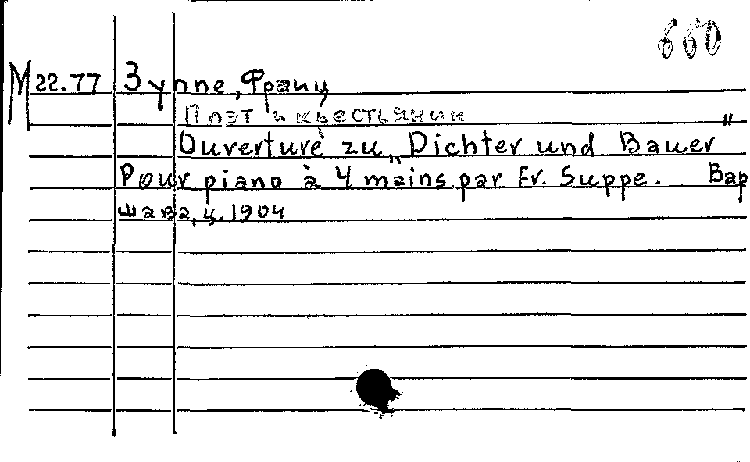 660
М 22.77 Зуппе, Франц
Поэт и крестьянин
Ouverture zu „Dichter und Bauer"
Pour piano à 4 mains par Fr. Suppe. Вар
шава, ц. 1904